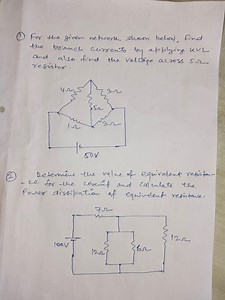 ① For the given network shown below, find
the branch currents by applying KVL
and also find the voltage across 5Ω
resistor
4Ω 3Ω
5Ω
1Ω 2Ω
50V
② Determine the value of Equivalent resistan-
-ce for the circuit and calculate the
Power dissipation of equivalent resistance.
7Ω
100V 12Ω 6Ω 12Ω